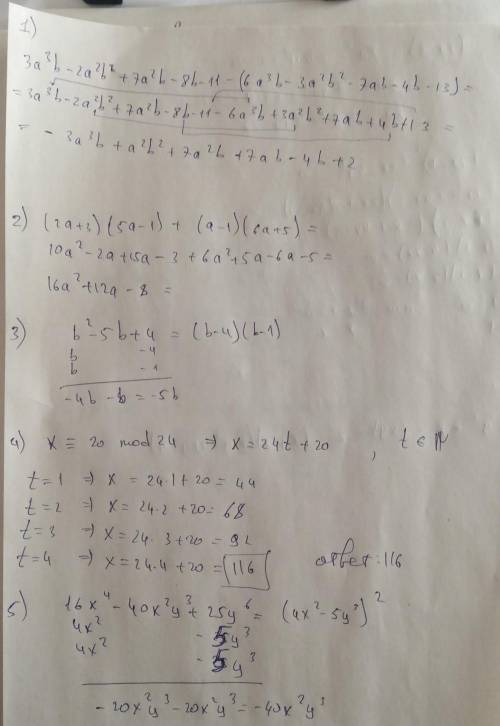 1)
3a³b - 2a²b² + 7a²b - 8b - 11 - (6a³b - 3a²b² - 7ab - 4b - 13) =
= 3a³b - 2a²b² + 7a²b - 8b - 11 - 6a³b + 3a²b² + 7ab + 4b + 13 =
= - 3a³b + a²b² + 7a²b + 7ab - 4b + 2
2) (2a+3)(5a-1) + (a-1)(6a+5) =
10a² - 2a + 15a - 3 + 6a² + 5a - 6a - 5 =
16a² + 12a - 8 =
3) b² - 5b + 4 = (b-4)(b-1)
b -4
b -1
-4b - b = -5b
4) x ≡ 20 mod 24 ⇒ x = 24t + 20 , t ∈ ℕ
t = 1 ⇒ x = 24·1 + 20 = 44
t = 2 ⇒ x = 24·2 + 20 = 68
t = 3 ⇒ x = 24·3 + 20 = 92
t = 4 ⇒ x = 24·4 + 20 = 116 ответ: 116
5) 16x⁴ - 40x²y³ + 25y⁶ = (4x² - 5y³)²
4x² - 5y³
4x² - 5y³
- 20x²y³ - 20x²y³ = -40x²y³